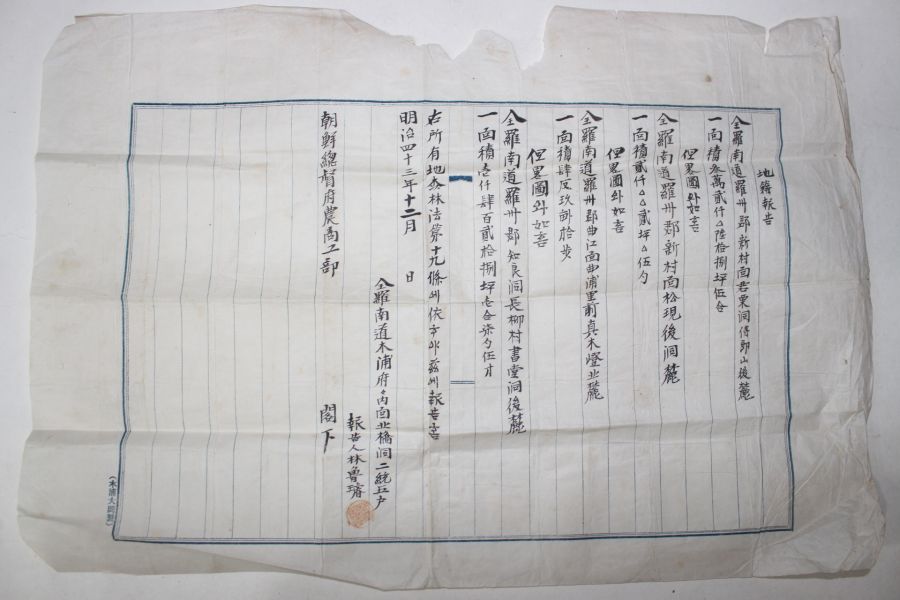 地籍報告
全羅南道羅州郡新村面君栗洞傳郎山後麓
一面積叄萬貳仟△陸拾捌坪伍合
但畧圖와如喜
全羅南道羅州郡新村面松現後洞麓
一面積貳仟△△貳坪△伍勺
但畧圖와如喜
全羅南道羅州郡曲江面曲浦里前真木嶝北麓
一面積肆反玖畝拾步
但畧圖와如喜
全羅南道羅州郡知良洞長柳村書堂洞後麓
一面積壱仟肆百貳拾捌坪壱合柒勺伍才
右所有地森林法第十九條에依하야玆에報告喜
明治四十三年十二月 日
全羅南道木浦府府內面北橋洞二統五戶
報告人林魯
朝鮮總督府農商工部 閣下